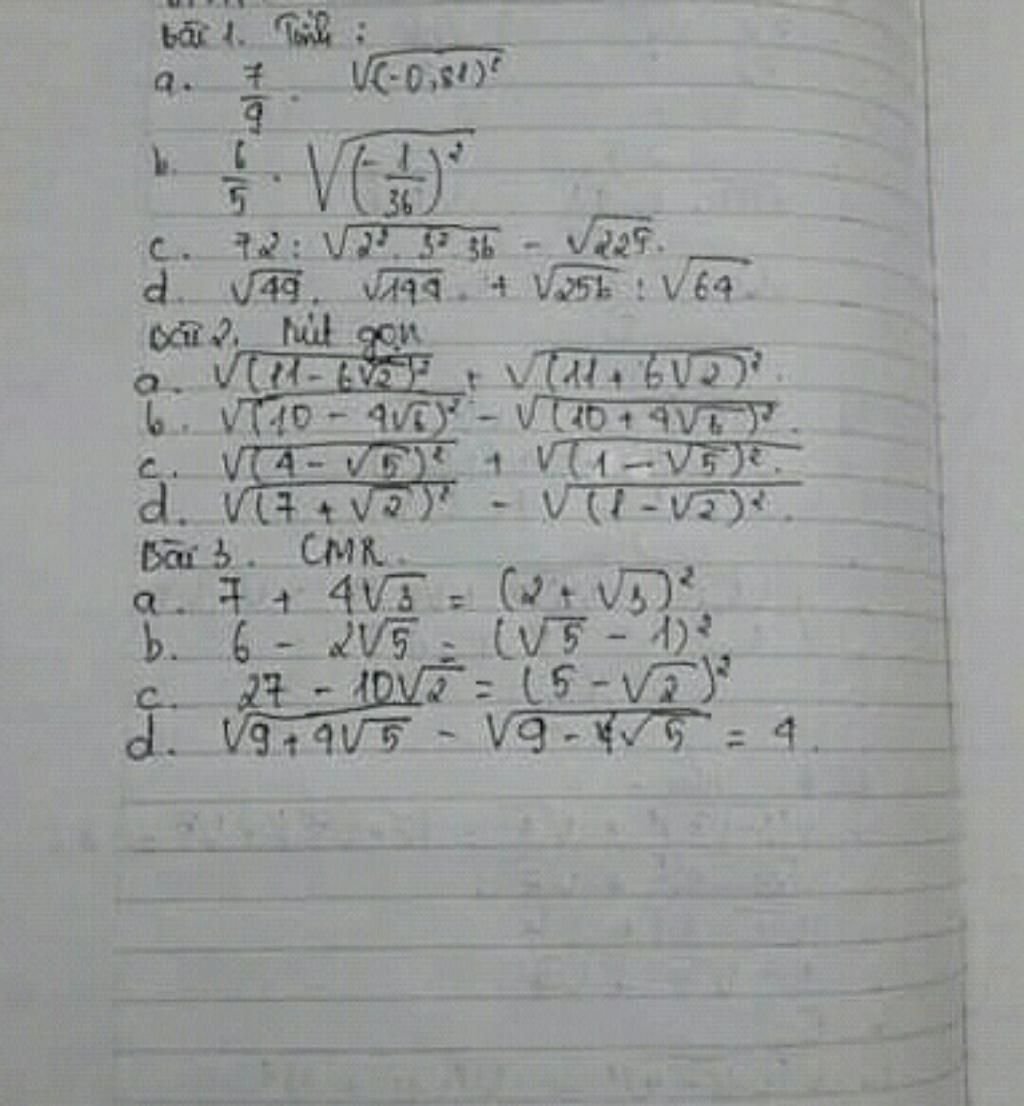 Bài 1. Tính :
a. 7/9 . √(-0,81)²
b. 6/5 . √(-1/36)²
c. 72 : √2² . 3² . 36 - √225.
d. √49 . √144 . + √256 : √64.
Bài 2. Rút gọn
a. √(11 - 6√2)² + √(11 + 6√2)².
b. √(10 - 4√6)² - √(10 + 4√6)².
c. √(4 - √5)² + √(1 - √5)².
d. √(7 + √2)² - √(1 - √2)².
Bài 3. CMR.
a. 7 + 4√3 = (2 + √3)²
b. 6 - 2√5 = (√5 - 1)²
c. 27 - 10√2 = (5 - √2)²
d. √9 + 4√5 - √9 - 4√5 = 4.